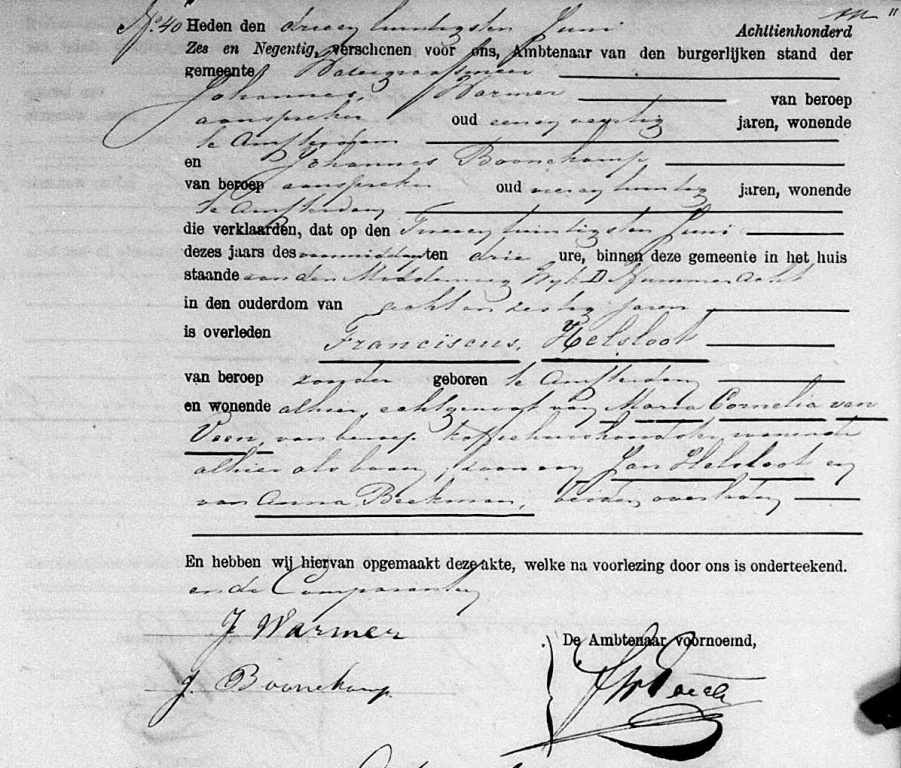 No. 40 Heden den drieentwintigsten Juni Achttienhonderd
Zes en Negentig, verschenen voor ons, Ambtenaar van den burgerlijken stand der
gemeente Watergraafsmeer
Johannes, Warmer van beroep
aanspreker oud eenenveertig jaren, wonende
te Amsterdam
en Johannes Boonekamp
van beroep aanspreker oud vierentwintig jaren, wonende
te Amsterdam
die verklaarden, dat op den Tweeentwintigsten Juni
dezes jaars des voormiddags ten drie ure, binnen deze gemeente in het huis
staande aan den Middenweg Wijk D Nummer acht
in den ouderdom van acht en zestig jaren
is overleden
Franciscus, Helsloot
van beroep zonder geboren te Amsterdam
en wonende alhier, echtgenoot van Maria Cornelia van
Veen, van beroep koffiehuishoudster wonende
alhier als boven, zoon van Jan Helsloot en
van Anna Beekman, beiden overleden
En hebben wij hiervan opgemaakt deze akte, welke na voorlezing door ons is onderteekend.
en de Comparanten
J Warmer
De Ambtenaar voornoemd,
J. Boonekamp